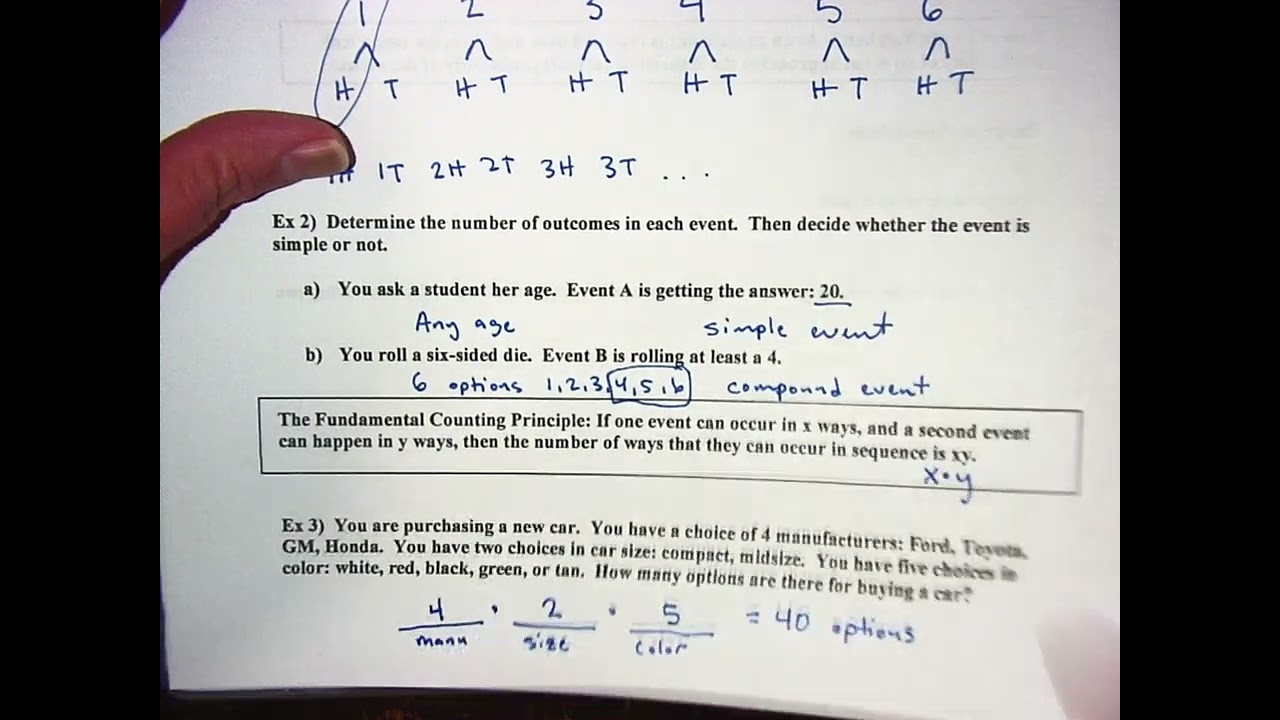 1 2 3 4 5 6
H T H T H T H T H T H T
1H 1T 2H 2T 3H 3T ...
Ex 2) Determine the number of outcomes in each event. Then decide whether the event is
simple or not.
a) You ask a student her age. Event A is getting the answer: 20.
Any age simple event
b) You roll a six-sided die. Event B is rolling at least a 4.
6 options 1,2,3,4,5,6 compound event
The Fundamental Counting Principle: If one event can occur in x ways, and a second event
can happen in y ways, then the number of ways that they can occur in sequence is xy.
x•y
Ex 3) You are purchasing a new car. You have a choice of 4 manufacturers: Ford, Toyota,
GM, Honda. You have two choices in car size: compact, midsize. You have five choices in
color: white, red, black, green, or tan. How many options are there for buying a car?
4 • 2 • 5 = 40 options
manu size color